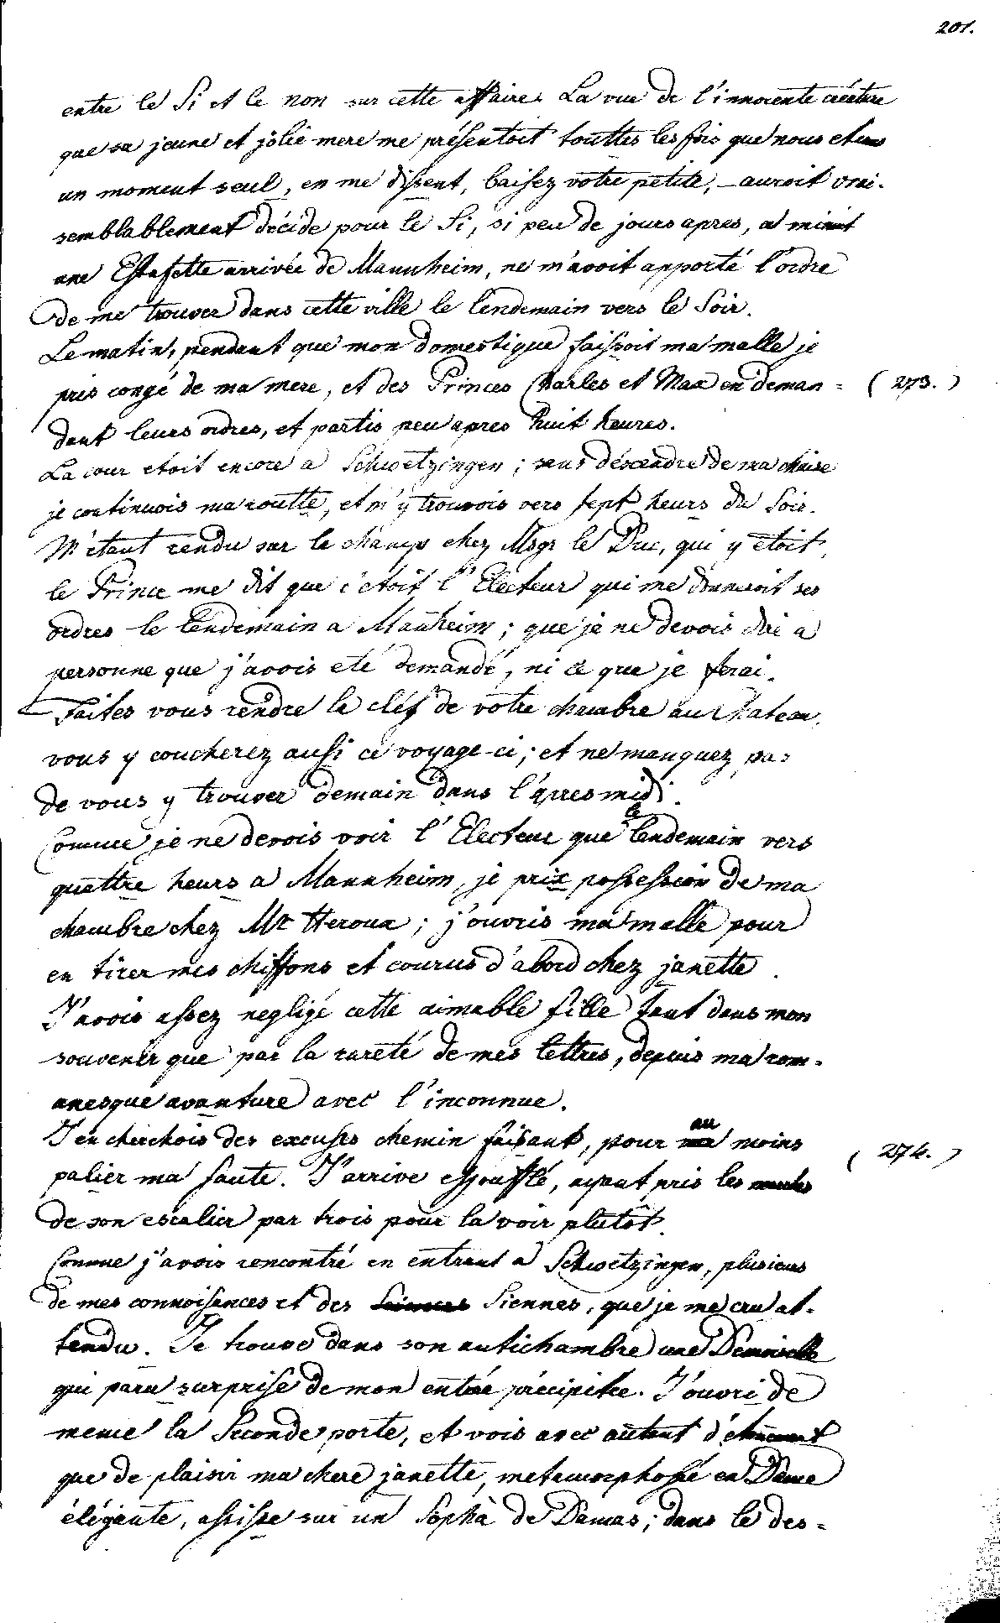 201.
entre le Si et le non sur cette affaire. La vue de l'innocente créature
que sa jeune et jolie mere me présentoit touttes les fois que nous etions
un moment seul, en me disent, baisez votre petite, auroit vrai-
semblablement décidé pour le Si, si peu de jours apres, a minuit
une Estafette arrivée de Mannheim, ne m'avoit apporté l'ordre
de me trouver dans cette ville le lendemain vers le Soir.
Le matin, pendent que mon domestique faissoit ma malle je
pris congé de ma mere, et des Princes Charles et Max en deman = (273.)
dant leurs ordres, et partis peu apres huit heures.
La cour etoit encore a Schwetzingen; sans déscendre de ma chaise
je continuois ma routte, et m'y trouvois vers sept heurs du Soir.
M'étant rendu sur le champs chez Msgr le Duc, qui y étoit,
le Prince me dit que c'etoit l'Electeur qui me donneroit ses
ordres le lendemain a Manheim; que je ne devois dire a
personne que j'avois eté demandé, ni ce que je ferai.
Faites vous rendre la cléf de votre chambre au chateau,
vous y coucherez aussi ce voyage-ci; et ne manquez pas
de vous y trouver demain dans l'apres midi.
Comme je ne devois voir l'Electeur que le lendemain vers
quattre heurs a Mannheim, je prix possession de ma
chambre chez Mr Heroux; j'ouvris ma malle pour
en tirer mes chiffons et courus d'abord chez janette.
J'avois assez negligé cette aimable fille tant dans mon
souvenir que par la rareté de mes lettres, depuis ma rom-
anesque avanture avec l'inconnue.
J'en cherchois des excuses chemin faisant, pour au moins
palier ma faute. J'arrive essoufflé, ayant pris les (274.)
de son escalier par trois pour la voir plutôt.
Comme j'avois rencontré en entrant a Schwetzingen, plusieurs
de mes connoisences et des Siennes, que je me cru at-
tendu. Je trouve dans son antichambre une Demoiselle
qui paru surprise de mon entrée précipitée. J'ouvri de
meme la Seconde porte, et vois avec autant d'étonnement
que de plaisir ma chere janette, metamorphosé en Dame
élégante, assisse sur un Sopha de Damas; dans le des =